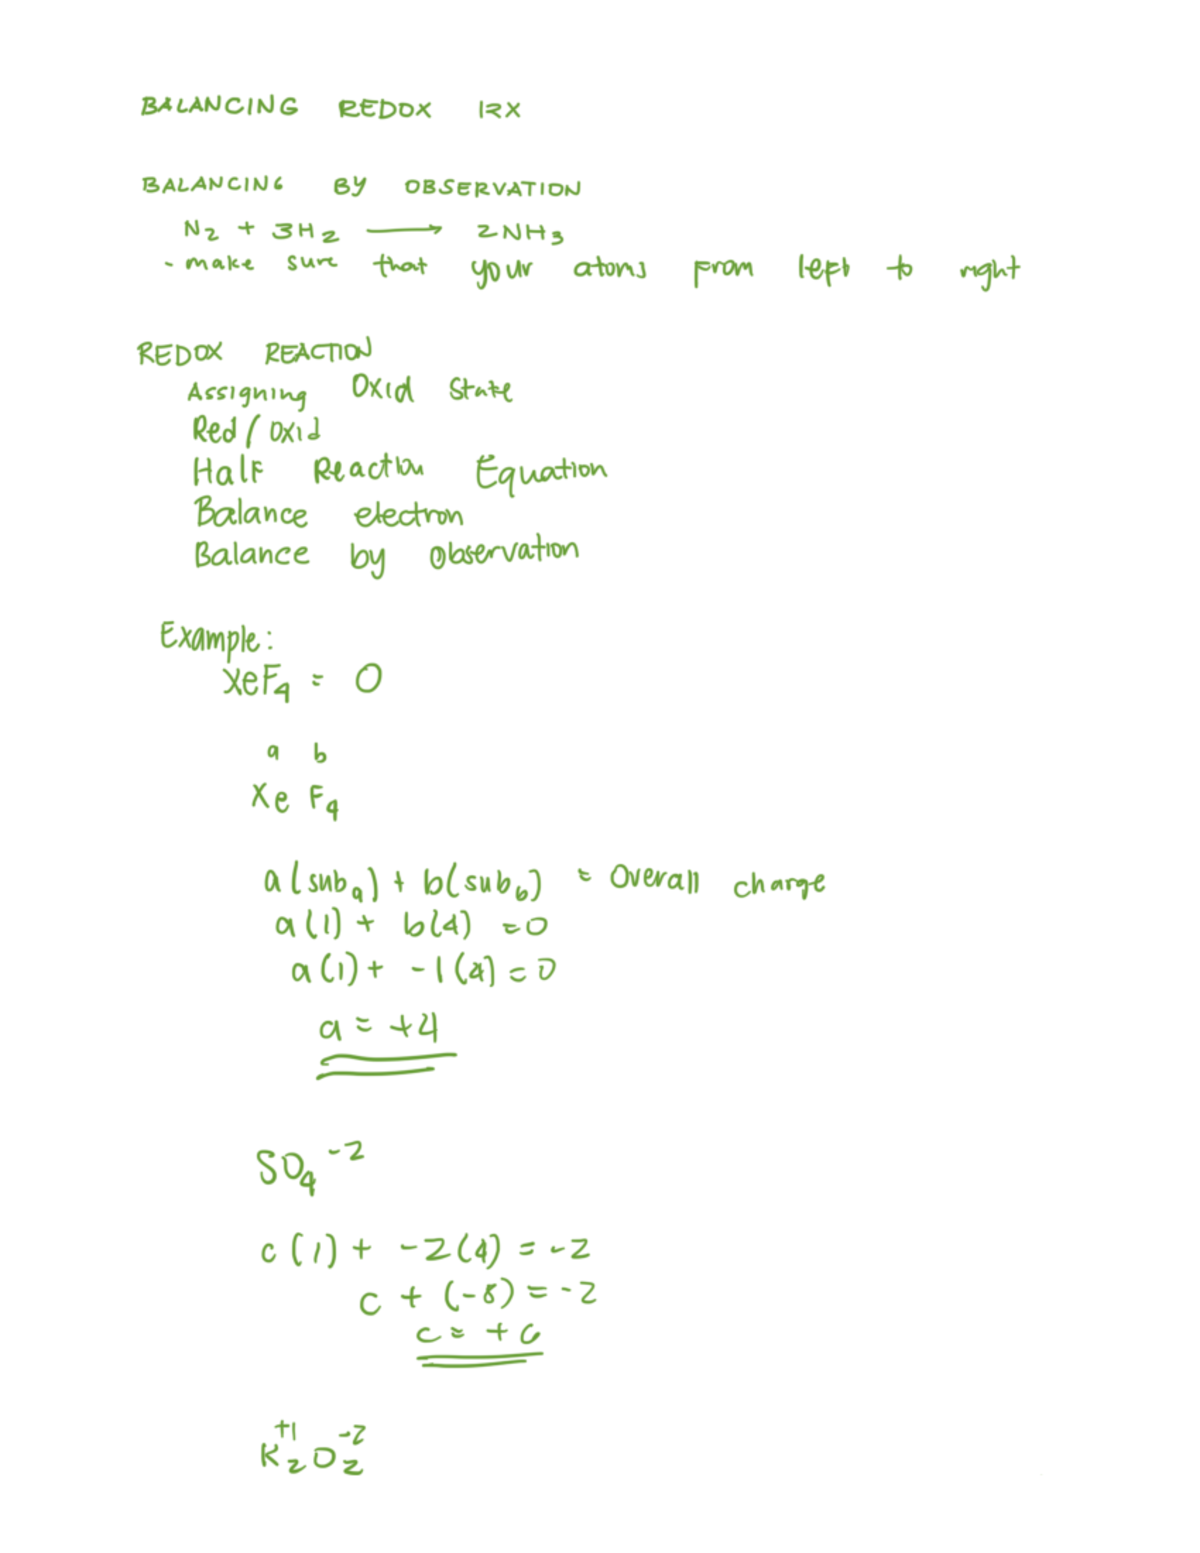 BALANCING REDOX RX
BALANCING BY OBSERVATION
N₂ + 3H₂ ⟶ 2NH₃
- make sure that your atoms from left to right
REDOX REACTION
Assigning Oxid State
Red / Oxid
Half Reaction Equation
Balance electron
Balance by observation
Example:
XeF₄ = 0
a b
Xe F₄
a(subₐ) + b(sub_b) = Overall charge
a(1) + b(4) = 0
a(1) + -1(4) = 0
a = +4
SO₄⁻²
c(1) + -2(4) = -2
c + (-8) = -2
c = +6
+1 -2
K₂O₂